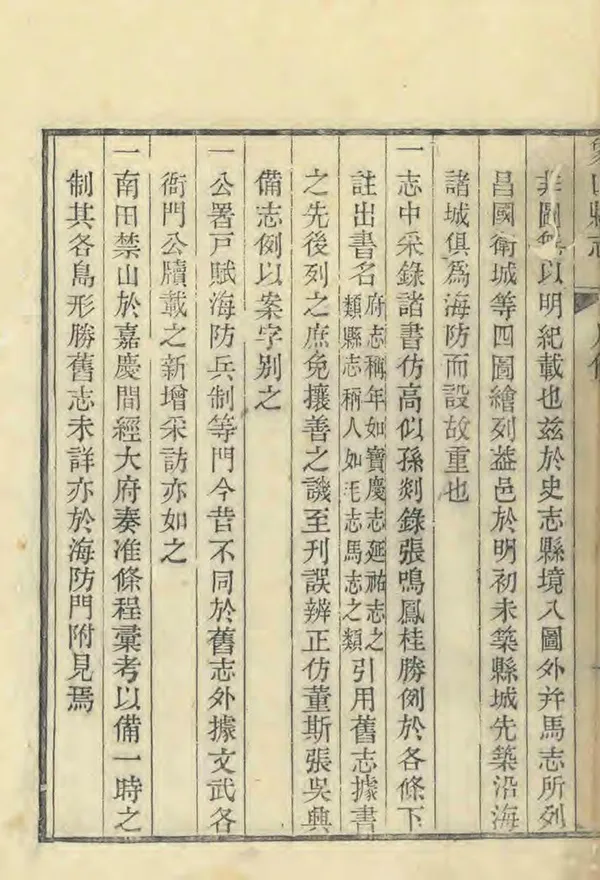 象山縣志
凡例
非圖無以明紀載也玆於史志縣境入圖外幷馬志所列
昌國衛城等四圖繪列益邑於明初未築縣城先築沿海
諸城俱爲海防而設故重也
一志中采錄諸書仿高似孫剡錄張鳴鳳桂勝例於各條下
註出書名府志稱年如寶慶志延祐志之類縣志稱人如毛志馬志之類引用舊志據書
之先後列之庶免攘善之譏至刊誤辨正仿董斯張吳興
備志例以案字別之
一公署戸賦海防兵制等門今昔不同於舊志外據文武各
衙門公牘載之新增采訪亦如之
一南田禁山於嘉慶間經大府奏准條程彙考以備一時之
制其各島形勝舊志未詳亦於海防門附見焉